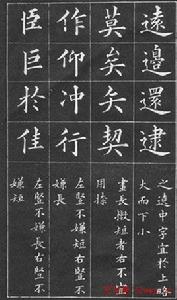 遠邊還逮
之遶中字宜於上略
大而下小
莫矣契
畫長撇短者右不宜
用捺
作仰冲行
左竪不嫌短右竪不
嫌長
臣巨於佳
左竪不嫌長右竪不
嫌短